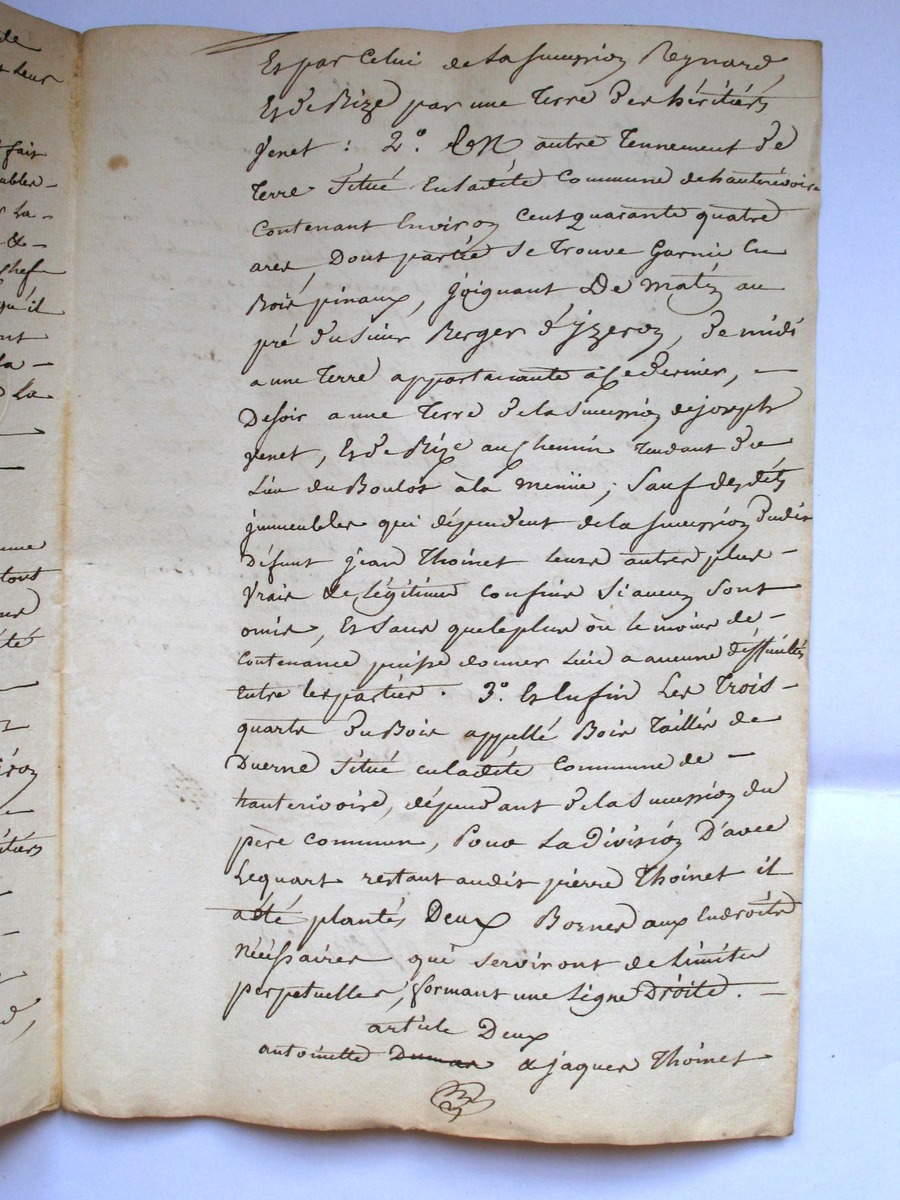 Et par Celui de La Succession Reynard,
Et de Bize par une Terre des héritiers
Venet : 2.° Un autre Tennement de
Terre Situé En ladite Commune de hauterivoire
Contenant Environ Cent quarante quatre
ares, Dont partie Se Trouve Garnie En
Bois pinaux, Joignant De matin au
pré du Sieur Berger d'yzeron, de midi
a une Terre appartenante à Ce dernier, —
De soir a une Terre de la Succession de joseph
Venet, Et de Bize au Chemin Tendant du
Lieu du Boulot à la ; Sauf desdits
jmmeubles qui dépendent de la Succession dudit
Défunt jean Thoinet leurs autres plus —
Vrais & légitimes Confins Si aucun Sont
omis, Et Sans que le plus ou le moins de —
Contenance puisse donner Lieu a aucune difficultés
Entre les parties. 3.° Et Enfin Les Trois —
quarts du Bois appellé Bois Taillis de
Duerne Situé en ladite Commune de —
hauterivoire, dépendant de la Succession du
père commun, Pour La Division D'avec
Le quart restant audit pierre Thoinet il
a été plantés Deux Bornes aux Endroits
Nécéssaires qui Serviront de Limites
perpetuelles, formant une Ligne Droite. —
article Deux
antoinette & jaques Thoinet